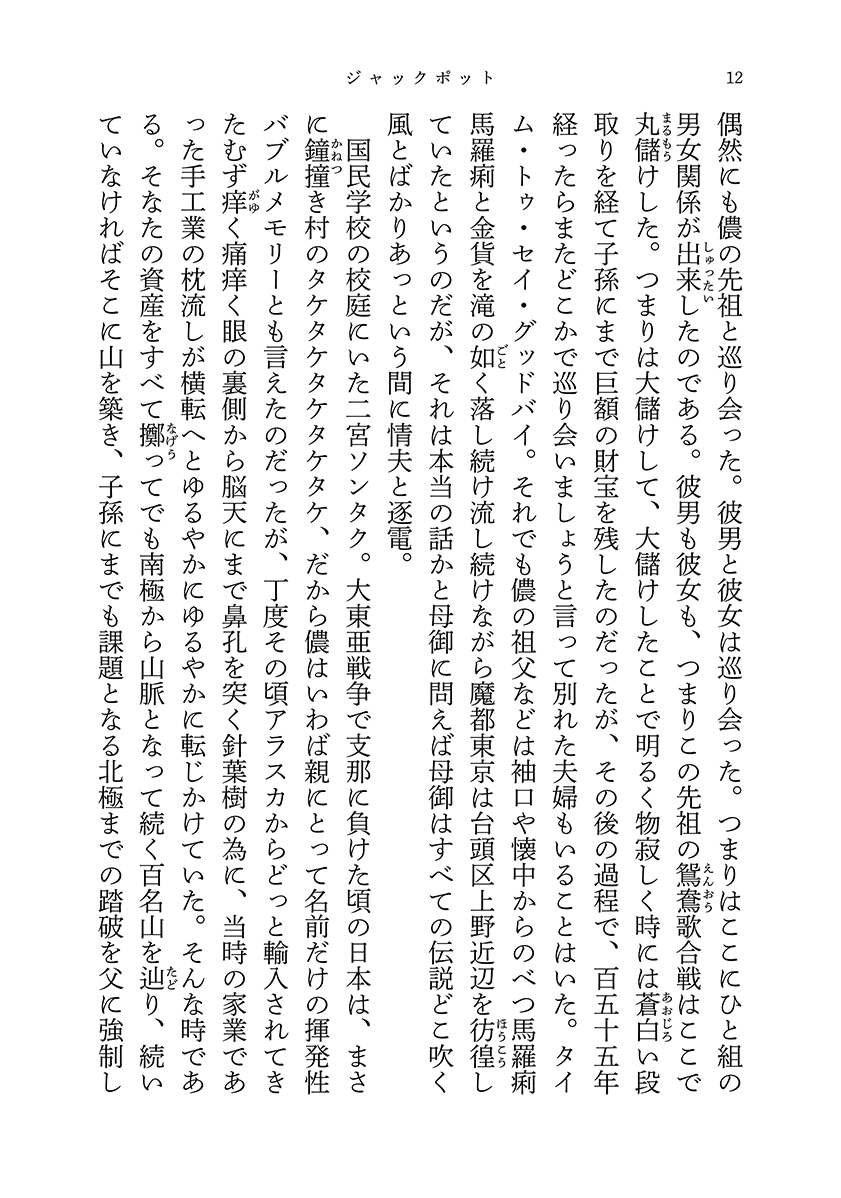 ジャックポット
12
偶然にも儂の先祖と巡り会った。彼男と彼女は巡り会った。つまりはここにひと組の
男女関係が出来したのである。彼男も彼女も、つまりこの先祖の鴛鴦歌合戦はここで
丸儲けした。つまりは大儲けして、大儲けしたことで明るく物寂しく時には蒼白い段
取りを経て子孫にまで巨額の財宝を残したのだったが、その後の過程で、百五十五年
経ったらまたどこかで巡り会いましょうと言って別れた夫婦もいることはいた。タイ
ム・トゥ・セイ・グッドバイ。それでも儂の祖父などは袖口や懐中からのべつ馬羅痢
馬羅痢と金貨を滝の如く落し続け流し続けながら魔都東京は台頭区上野近辺を彷徨し
ていたというのだが、それは本当の話かと母御に問えば母御はすべての伝説どこ吹く
風とばかりあっという間に情夫と逐電。
国民学校の校庭にいた二宮ソンタク。大東亜戦争で支那に負けた頃の日本は、まさ
に鐘撞き村のタケタケタケタケタケ、だから儂はいわば親にとって名前だけの揮発性
バブルメモリーとも言えたのだったが、丁度その頃アラスカからどっと輸入されてき
たむず痒く痛痒く眼の裏側から脳天にまで鼻孔を突く針葉樹の為に、当時の家業であ
った手工業の枕流しが横転へとゆるやかにゆるやかに転じかけていた。そんな時であ
る。そなたの資産をすべて擲ってでも南極から山脈となって続く百名山を辿り、続い
ていなければそこに山を築き、子孫にまでも課題となる北極までの踏破を父に強制し